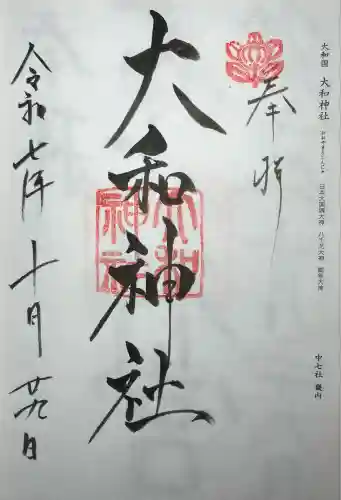 大和国 大和神社 おおやまとじんじゃ 日本大国魂大神 八千戈大神 御年大神 中七社 畿内
奉拝
大和神社
大和神社
令和七年十月廿九日